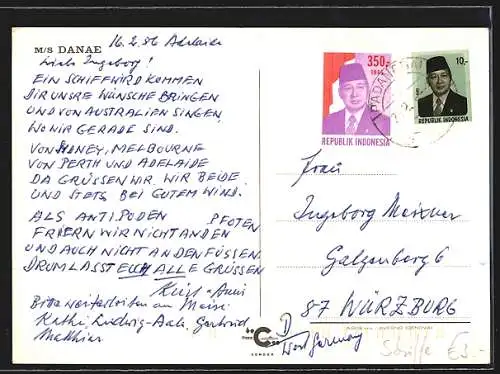 M/S DANAE
16.2.86 Adelaide
Liebe Ingeborg!
EIN SCHIFF WIRD KOMMEN
DIR UNSRE WÜNSCHE BRINGEN
UND VON AUSTRALIEN SINGEN,
WO WIR GERADE SIND.
VON SYDNEY, MELBOURNE
VON PERTH UND ADELAIDE
DA GRÜSSEN WIR WIR BEIDE
UND STETS BEI GUTEM WIND.
ALS ANTIPODEN PFOTEN
FRIEREN WIR NICHT AN DEN
UND AUCH NICHT AN DEN FÜSSEN.
DRUM LASST EUCH ALLE GRÜSSEN
Bitte weiterleiten an
Kathi, Ludwig-
Matthias
350,-
1985
REPUBLIK INDONESIA
10,-
REPUBLIK INDONESIA
Frau
Ingeborg Meixner
Galgenberg 6
87 WÜRZBURG
D
West Germany